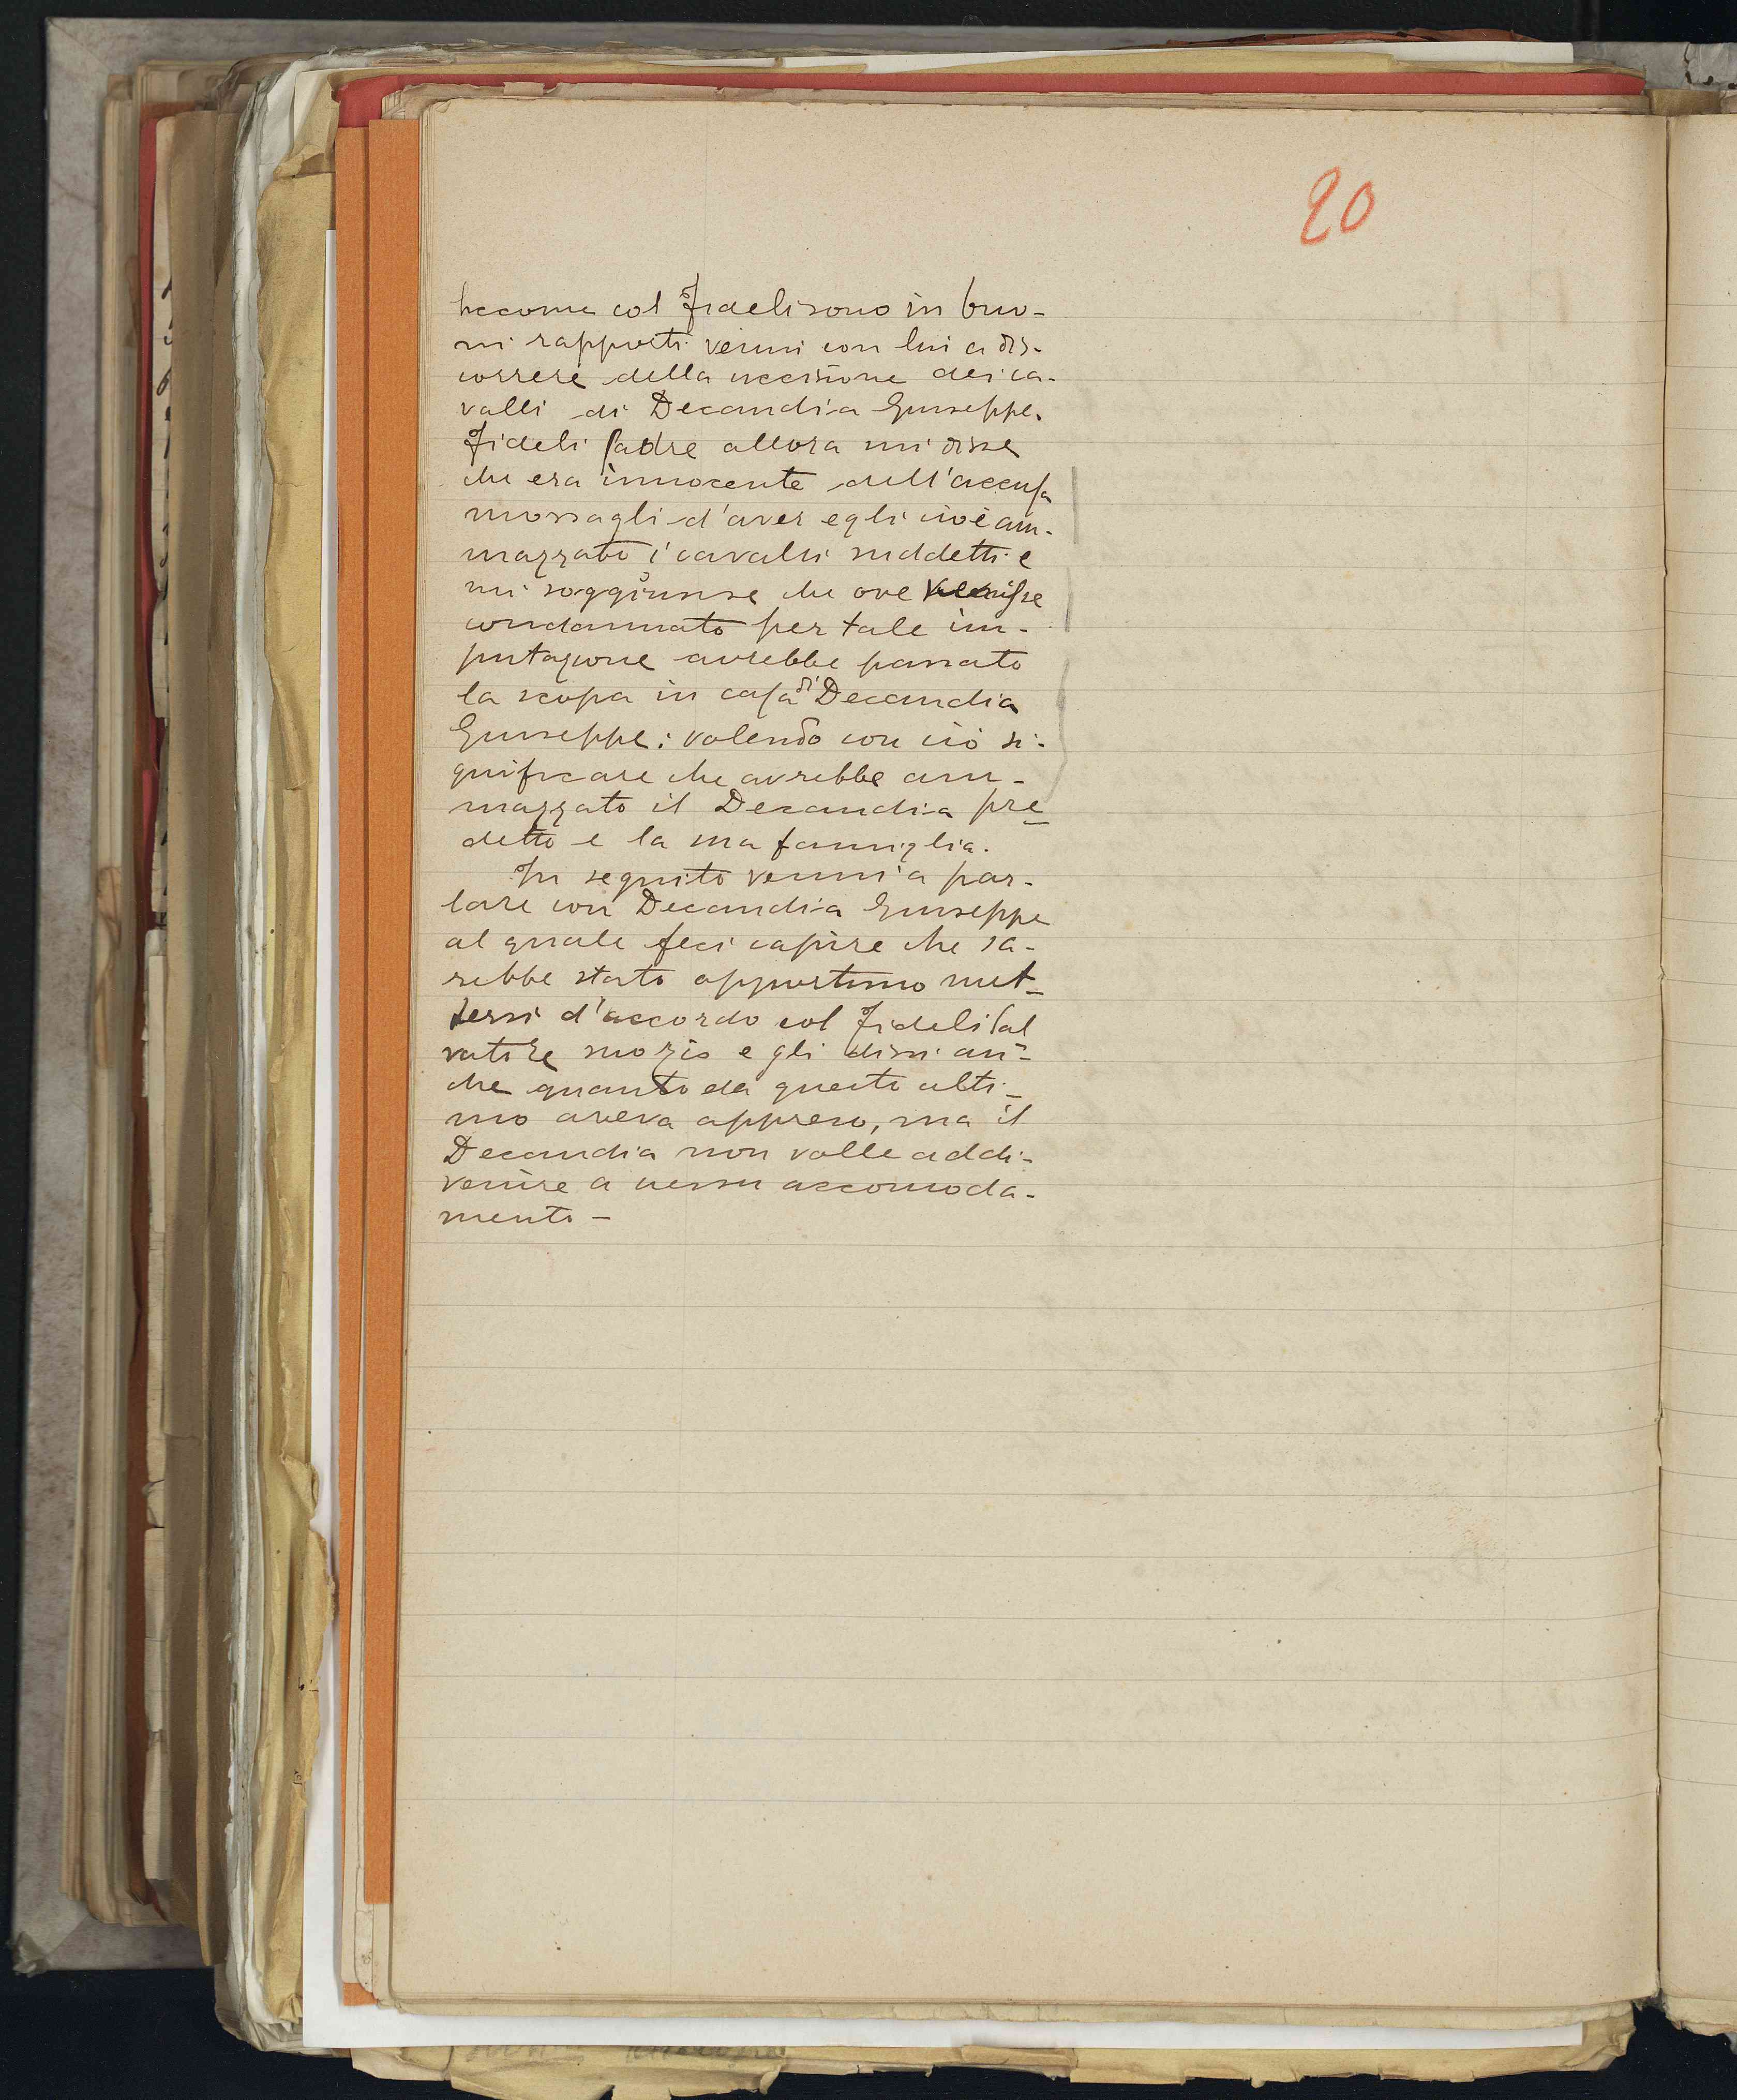 20
siccome col Fideli sono in buo-
ni rapporti venni con lui a dis-
correre della uccisione dei ca-
valli di Decandia Giuseppe.
Fideli padre allora mi disse
che era innocente dell'accusa
mossagli d'aver egli cioè am-
mazzato i cavalli suddetti e
mi soggiunse che ove venisse
condannato per tale im-
putazione avrebbe passato
la scopa in casa di Decandia
Giuseppe: volendo con ciò si-
gnificare che avrebbe am-
mazzato il Decandia pre
detto e la sua famiglia.
In seguito venni a par-
lare con Decandia Giuseppe
al quale feci capire che sa-
rebbe stato opportuno met-
tersi d'accordo col Fideli Sal
vatore mozio e gli dissi an-
che quanto da questo ulti-
mo aveva appreso, ma il
Decandia non volle addi-
venire a nessun accomoda-
mento -